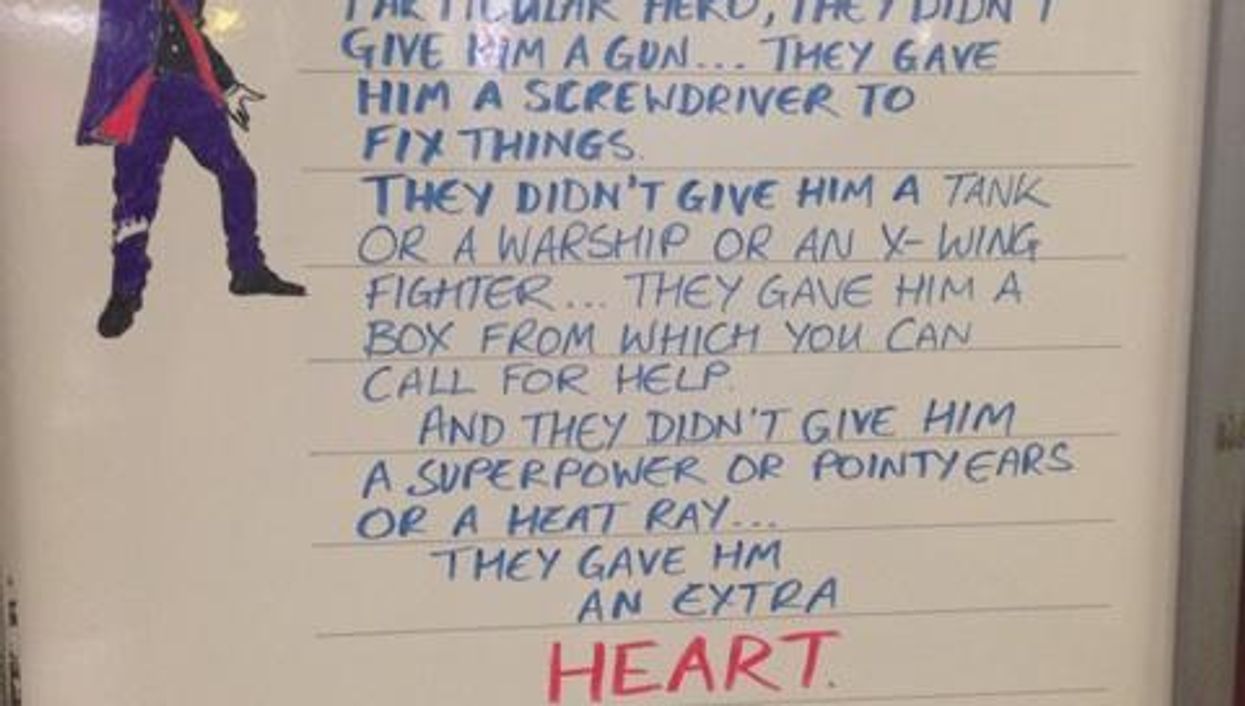 PARTICULAR HERO, THEY DIDN'T
GIVE HIM A GUN... THEY GAVE
HIM A SCREWDRIVER TO
FIX THINGS.
THEY DIDN'T GIVE HIM A TANK
OR A WARSHIP OR AN X-WING
FIGHTER... THEY GAVE HIM A
BOX FROM WHICH YOU CAN
CALL FOR HELP.
AND THEY DIDN'T GIVE HIM
A SUPERPOWER OR POINTY EARS
OR A HEAT RAY...
THEY GAVE HM
AN EXTRA
HEART.